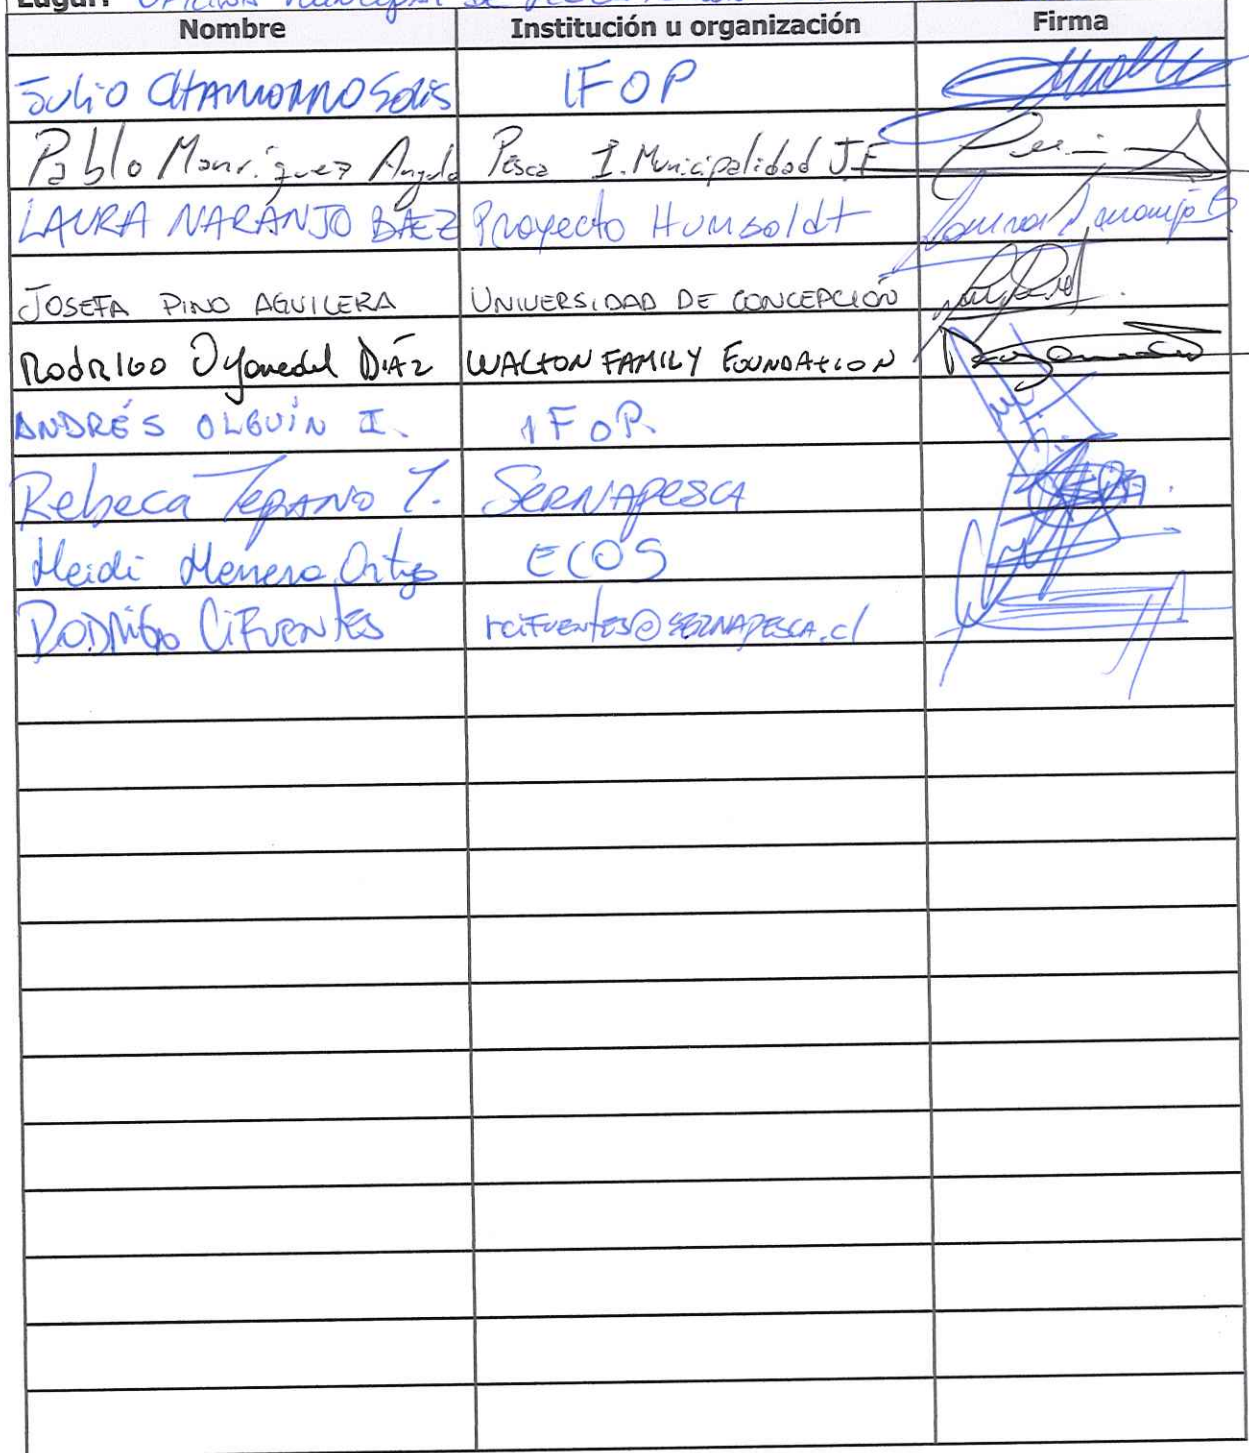 Lugar:
Nombre Institución u organización Firma
Julio CHAMORRO Solis IFOP
Pablo Manríquez Angulo Pesca I. Municipalidad J.F
LAURA NARANJO BÁEZ Proyecto Humboldt Laura Naranjo B
JOSEFA PINO AGUILERA UNIVERSIDAD DE CONCEPCIÓN
Rodrigo Oyanedel Díaz WALTON FAMILY FOUNDATION
ANDRÉS OLGUÍN I. IFOP.
Rebeca Tepano T. SERNAPESCA
Heidi Herrera Ortiz ECOS
RODRIGO CIFUENTES rcifuentes@SERNAPESCA.cl